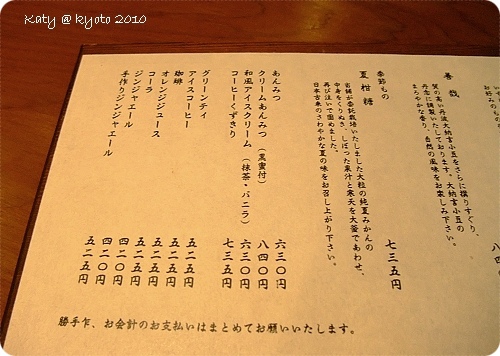 Katy @ kyoto 2010
お好みのもの
善哉
質の高い丹波大納言小豆をさらに撰りすぐり、
丹念に錬製いたしております。大納言小豆の
まろやかな香り、自然の風味をお楽しみ下さい。
季節もの
夏柑糖 七三五円
古舗が委託栽培いたしました大粒の純夏みかんの
中身をくりぬき、しぼった果汁と寒天を大釜であわせ、
再び注いで固めました。
日本古来のさわやかな夏の味をお召し上がり下さい。
あんみつ 六三〇円
クリームあんみつ(黒蜜付) 八四〇円
和風アイスクリーム(抹茶・バニラ) 六三〇円
コーヒーくずきり 七三五円
グリーンティ 五二五円
アイスコーヒー 五二五円
珈琲 五二五円
オレンジジュース 五二五円
コーラ 四二〇円
ジンジャエール 四二〇円
手作りジンジャエール 五二五円
勝手乍、お会計のお支払いはまとめてお願いいたします。